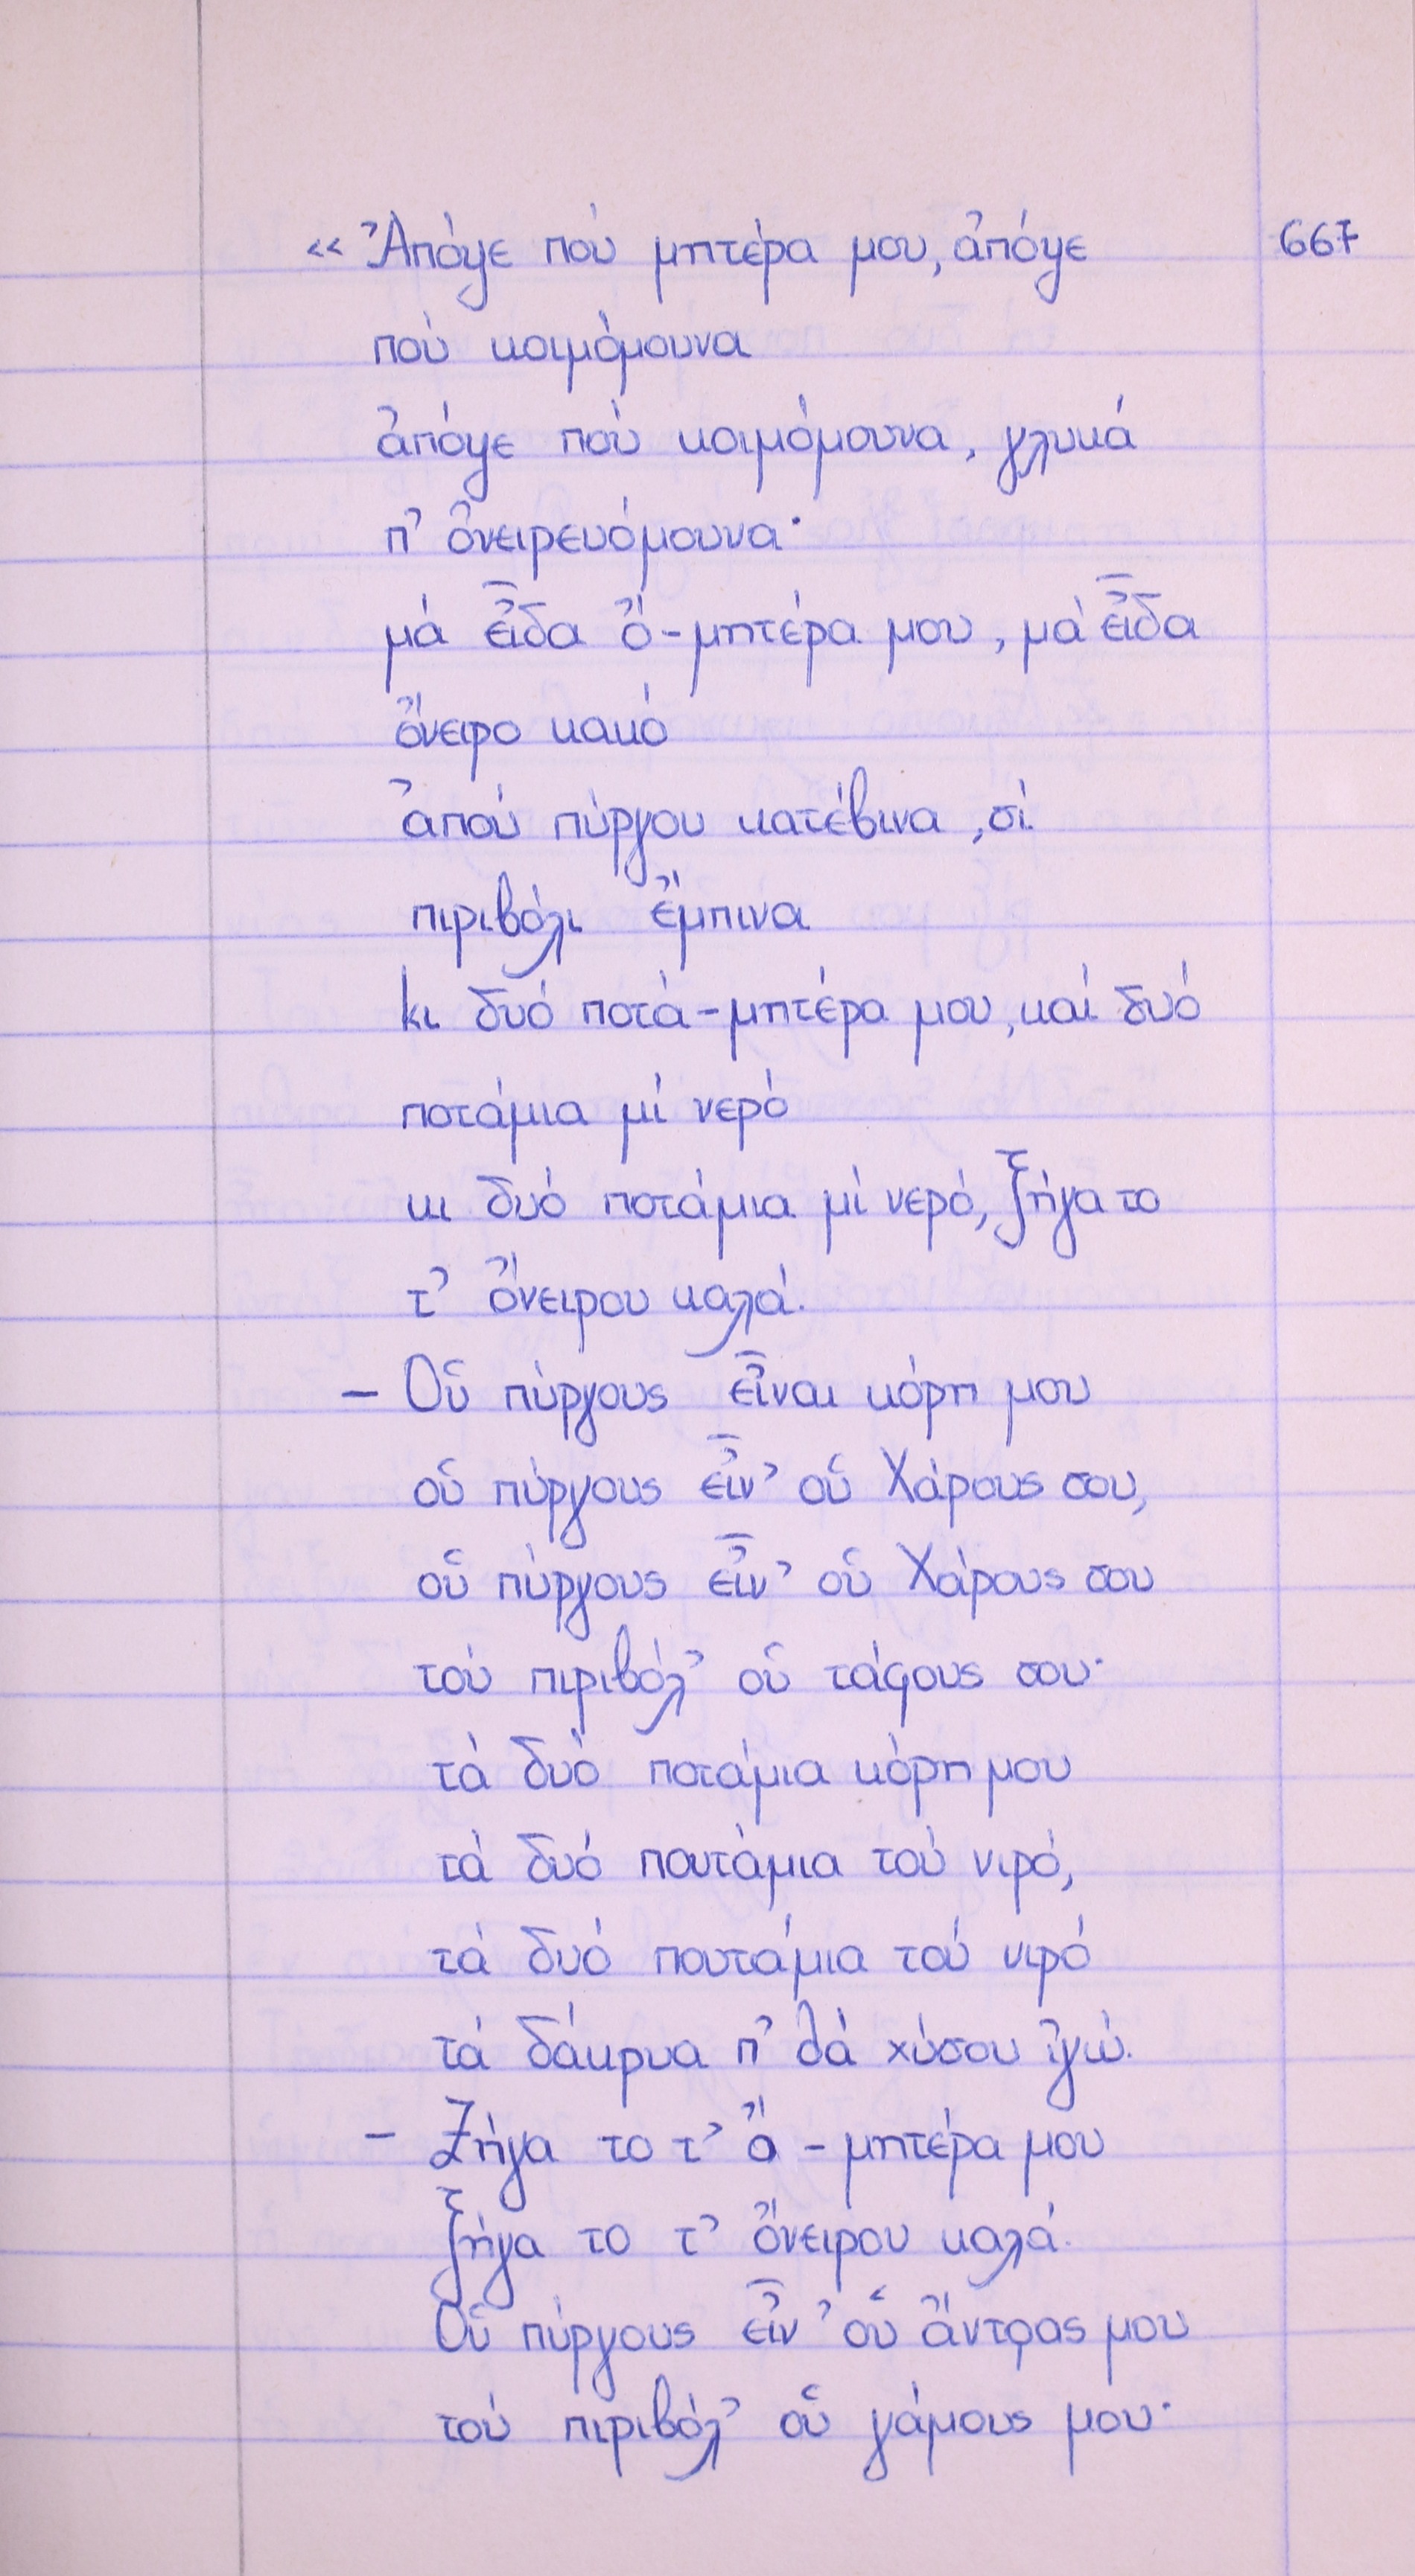 «Ἀπόψε πού μητέρα μου, ἀπόψε 667
πού κοιμόμουνα
ἀπόψε πού κοιμόμουνα, γλυκά
π' ὀνειρευόμουνα·
μά εἶδα ὄ-μητέρα μου, μά εἶδα
ὄνειρο κακό
ἀπού πύργου κατέβινα, σί
πιριβόλι ἔμπινα
κι δυό ποτά-μητέρα μου, καί δυό
ποτάμια μί νερό
κι δυό ποτάμια μί νερό, ξήγα το
τ' ὄνειρου καλά.
– Οὑ πύργους εἶναι κόρη μου
οὑ πύργους εἶν' οὑ Χάρους σου,
οὑ πύργους εἶν' οὑ Χάρους σου
τού πιριβόλ' οὑ τάφους σου·
τά δυό ποτάμια κόρη μου
τά δυό πουτάμια τού νιρό,
τά δυό πουτάμια τού νιρό
τά δάκρυα π' θά χύσου ἰγώ.
– Ξήγα το τ' ὄ-μητέρα μου
ξήγα το τ' ὄνειρου καλά.
Οὑ πύργους εἶν' οὑ ἄντρας μου
τού πιριβόλ' οὑ γάμους μου·